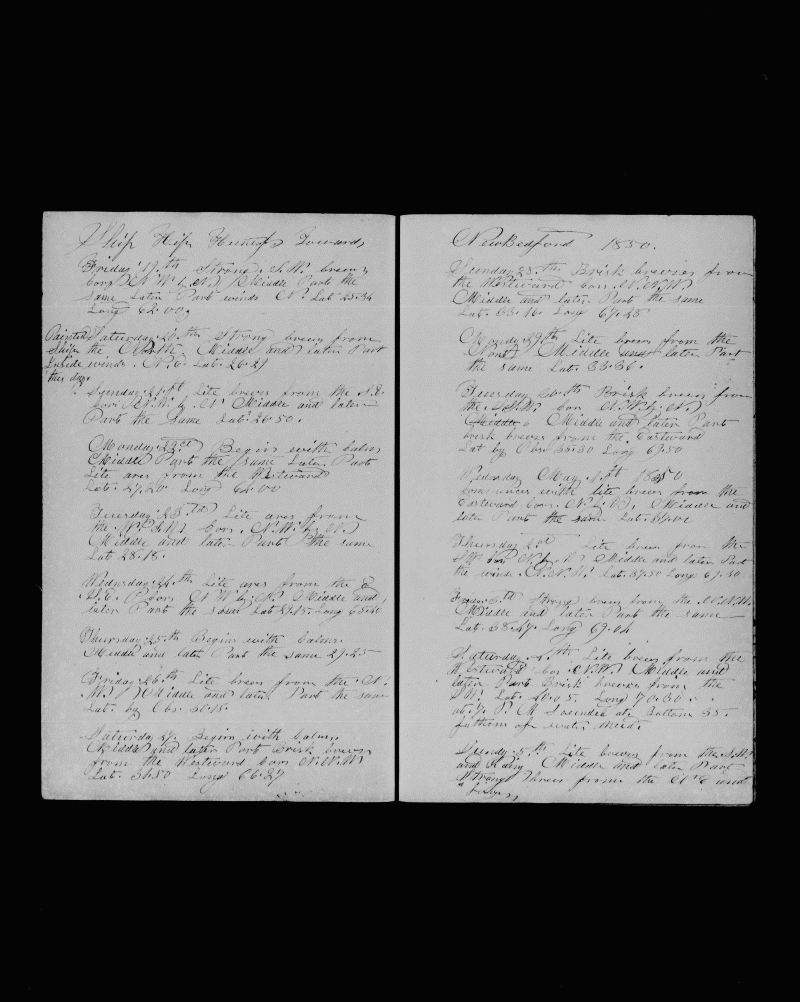 Ship Hesper Towards
Friday 19th Strong S.W. breeze
Cors N W by N Middle Part the
same Later Part winds N. Lat 25.34
Long 62.00
Painted
Ship
Inside
this day.
Saturday 20th Strong breezes from
the North. Middle and later Part
winds N.E. Lat. 26.21
Sunday 21st Lite brevse from the S.E.
Cors N.W. by N Middle and later
Part the same Lat. 26.50.
Monday 22nd Begins with calms
Middle Part the same Later Part
Lite ares from the Westward
Lat. 27.20 Long 64.00
Tuesday 23rd Lite ares from
the Cors. N.W. by N.
Middle and later Part the same
Lat 28.18.
Wednsday 24th Lite ares from the
S.E. Cors N W by N. Middle and
later Part the same Lat 29.15. Long 65.40
Thursday 25th Begins with Calms.
Middle and later Part the same 29.25
Friday 26th Lite brevse from the N.
W. Middle and later Part the same
Lat. by Obs. 30.15.
Saturday 27. Begins with calms
Middle and later Part Brisk brevse
from the Westward Cors N.N.W
Lat. 31.50 Long 66.27
New Bedford 1850.
Sunday 28th Brisk brevses from
the Westward Cors. N.N.W.
Middle and later Part the same
Lat. 33.16. Long 67.28
Monday 29th Lite brevse from the
South Middle and later Part
the same Lat. 33.36.
Tuesday 30th Brisk brevse from
the S.S.W. Cors N.W. by N.
Middle Middle and later Part
brisk brevses from the Eastward
Lat by Obs 35.30 Long 67.50
Wednsday May 1st 1850
Commences with lite brevse from the
Eastward Cors. N. by W. Middle and
later Part the same Lat. 37.02
Thursday 2nd Lite brevse from the
SW Cors N. by W. Middle and later Part
the winds N.N.W. Lat. 37.50 Long 67.50
3rd Strong brevse from the N.N.W.
Middle and later Part the same
Lat. 38.47. Long 69.04
Saturday 4th Lite brevse from the
Westward Cors N.W. Middle and
later Part Brisk brevses from the
S W. Lat. 40.05. Long 70.30
at 7. P. M Soundid at Bottom 35.
fathom of water Mud.
Sunday 5th Lite brevses from the S.W.
and Rainy Middle and later Part
Strong brevses from the N E and
foggy